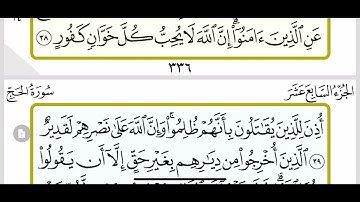 عَنِ الَّذِينَ ءَامَنُوا إِنَّ اللَّهَ لَا يُحِبُّ كُلَّ خَوَّانٍ كَفُورٍ ٣٨
٣٣٦
الجزء السابع عشر سورة الحج
أُذِنَ لِلَّذِينَ يُقَاتَلُونَ بِأَنَّهُمْ ظُلِمُوا وَإِنَّ اللَّهَ عَلَى نَصْرِهِمْ لَقَدِيرٌ
٣٩ الَّذِينَ أُخْرِجُوا مِن دِيَارِهِم بِغَيْرِ حَقٍّ إِلَّا أَن يَقُولُوا